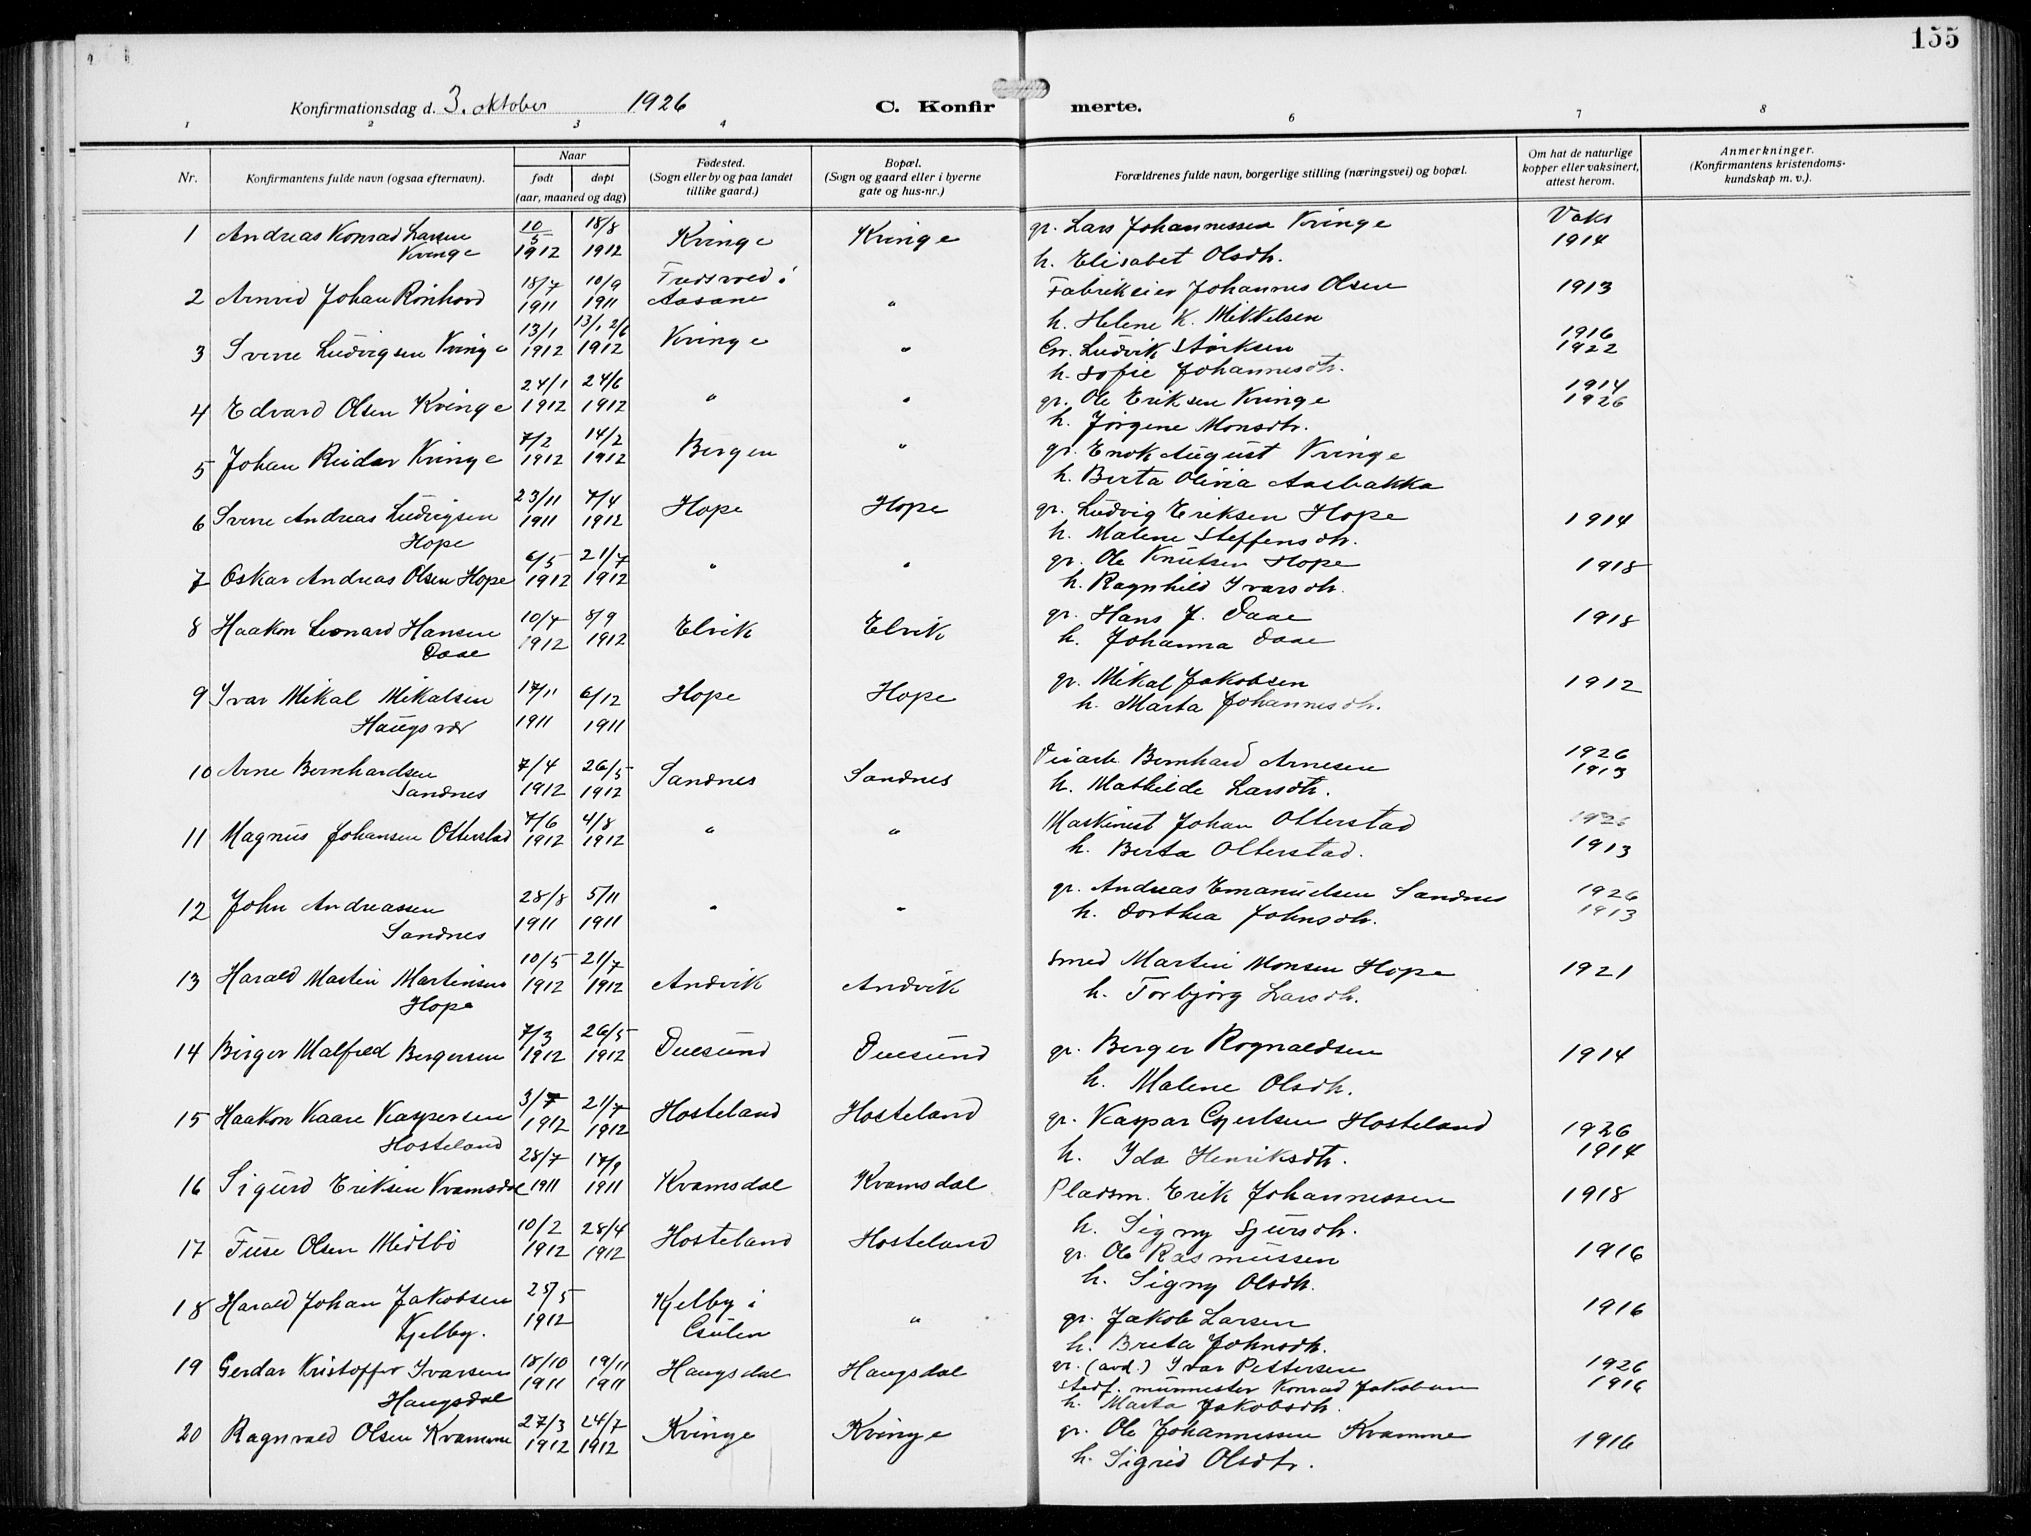 155
Konfirmationsdag d. 3. oktober 1926 C. Konfirmerte.
1 2 3 4 6 7 8
Nr. Konfirmantens fulde navn (ogsaa efternavn). Naar født døpt (aar, maaned og dag) Fødested. (Sogn eller by og paa landet tillike gaard.) Bopæl. (Sogn og gaard eller i byerne gate og hus-nr.) Forældrenes fulde navn, borgerlige stilling (næringsvei) og bopæl. Om hat de naturlige kopper eller vaksinert, attest herom. Anmerkninger. (Konfirmantens kristendomskundskap m. v.).
1 Andreas Konrad Larsen Kvinge 10/5 1912 18/8 1912 Kvinge Kvinge gr. Lars Johannessen Kvinge Vaks 1914
h. Elisabet Olsdtr.
2 Arnvid Johan Rönhovd 18/7 1911 10/9 1911 i Aasane " Fabrikeier Johannes Olsen 1913
h. Helene K. Mikkelsen
3 Sverre Ludvigsen Kvinge 13/1 1912 13/1 2/6 1912 Kvinge " Gr. Ludvik Störksen 1916 1922
h. Sofie Johannesdtr.
4 Edvard Olsen Kvinge 24/1 1912 24/6 1912 " " gr. Ole Eriksen Kvinge 1914 1926
h. Jörgene Monsdtr.
5 Johan Reidar Kvinge 7/2 1912 14/2 1912 Bergen " gr. Enok August Kvinge
h. Berta Olivia Aasbakka
6 Sverre Andreas Ludvigsen Hope 23/11 1911 7/4 1912 Hope Hope gr. Ludvig Eriksen Hope 1914
h. Malene Steffensdtr.
7 Oskar Andreas Olsen Hope 6/5 1912 21/7 1912 " " gr. Ole Knutsen Hope 1918
h. Ragnhild Ivarsdtr.
8 Haakon Leonard Hansen Daae 10/4 1912 8/9 1912 Elvik Elvik gr. Hans J. Daae 1918
h. Johanna Daae
9 Ivar Mikal Mikalsen Haugsvær 17/11 1911 6/12 1911 Hope Hope gr. Mikal Jakobsen 1912
h. Marta Johannesdtr.
10 Arne Bernhardsen Sandnes 7/4 1912 26/5 1912 Sandnes Sandnes Veiarb. Bernhard Arnesen 1926 1913
h. Mathilde Larsdtr.
11 Magnus Johansen Otterstad 7/6 1912 4/8 1912 " " Maskinist Johan Otterstad 1926 1913
h. Berta Otterstad.
12 John Andreassen Sandnes 28/8 1911 5/11 1911 " " gr. Andreas Emanuelsen Sandnes 1926 1913
h. Dorthea Johnsdtr.
13 Harald Martin Martinsen Hope 10/5 1912 21/7 1912 Andvik Andvik Smed Martin Monsen Hope 1921
h. Torbjörg Larsdtr.
14 Birger Malfred Bergersen 7/3 1912 26/5 1912 Duesund Duesund gr. Berger Rognaldsen 1914
h. Malene Olsdtr.
15 Haakon Kaare Kaspersen Hosteland 3/7 1912 21/7 1912 Hosteland Hosteland gr. Kaspar Gjertsen Hosteland 1926 1914
h. Ida Henriksdtr.
16 Sigurd Eriksen Kvamsdal 28/7 1911 17/9 1911 Kvamsdal Kvamsdal Pladsm. Erik Johannessen 1918
h. Signy Sjursdtr.
17 Fuse Olsen Midtbö 10/2 1912 28/4 1912 Hosteland Hosteland gr. Ole Rasmussen 1916
h. Signy Olsdtr.
18 Harald Johan Jakobsen Kjelby. 25/5 1912 Kjelby i Gulen " gr. Jakob Larsen 1916
h. Brita Johnsdtr.
19 Gerdar Kristoffer Ivarsen Haugsdal 18/10 1911 19/11 1911 Haugsdal Haugsdal gr. (avd.) Ivar Pettersen 1926 1916
stedf. murmester Konrad Jakobsen
h. Marta Jakobsdtr.
20 Ragnvald Olsen Kvamme 27/3 1912 24/7 1912 Kvinge Kvinge gr. Ole Johannessen Kvamme 1916
h. Sigrid Olsdtr.